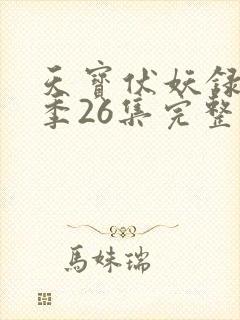 天寶伏妖録
季26集完整
馬妹瑞